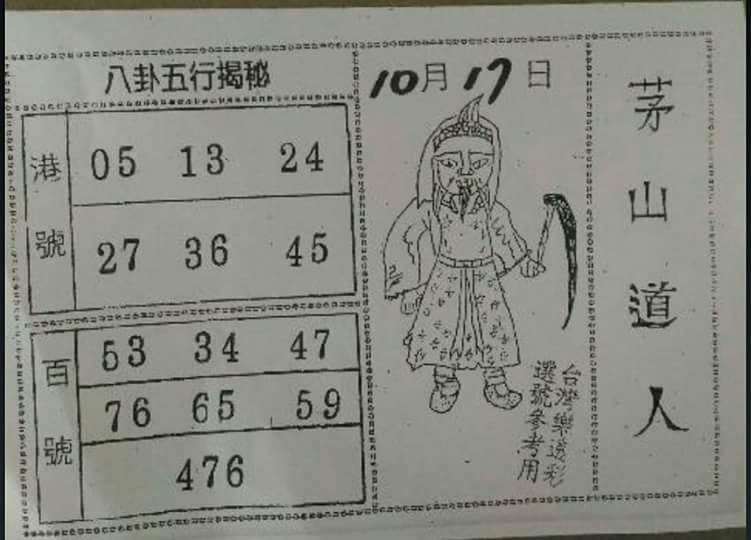 八卦五行揭秘
港號
05 13 24
27 36 45
百號
53 34 47
76 65 59
476
10月17日
台灣樂透彩
選號參考用
茅山道人